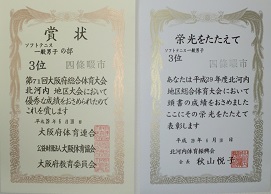 賞状
ソフトテニス
一般男子 の部
3位 四條畷市
第71回大阪府総合体育大会
北河内地区大会において
優秀な成績をおさめられたので
これを賞します
平成29年6月18日
大阪府体育連合
公益財団法人大阪体育協会
大阪府教育委員会
栄光をたたえて
ソフトテニス
一般男子
3位 四條畷市
あなたは平成29年度北河内
地区総合体育大会において
頭書の成績をおさめました
ここにその栄光をたたえて
表彰します
平成29年6月18日
北河内体育振興会
会長 秋山悦子